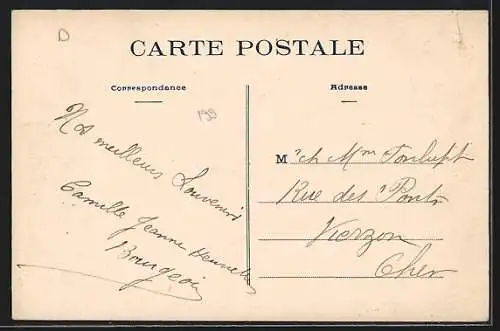 D
CARTE POSTALE
Correspondance
Adresse
Nos meilleurs Souvenirs
Camille Jeanne
Bourgeois
M r & Mme
Rue des Ponts
Vierzon
Cher